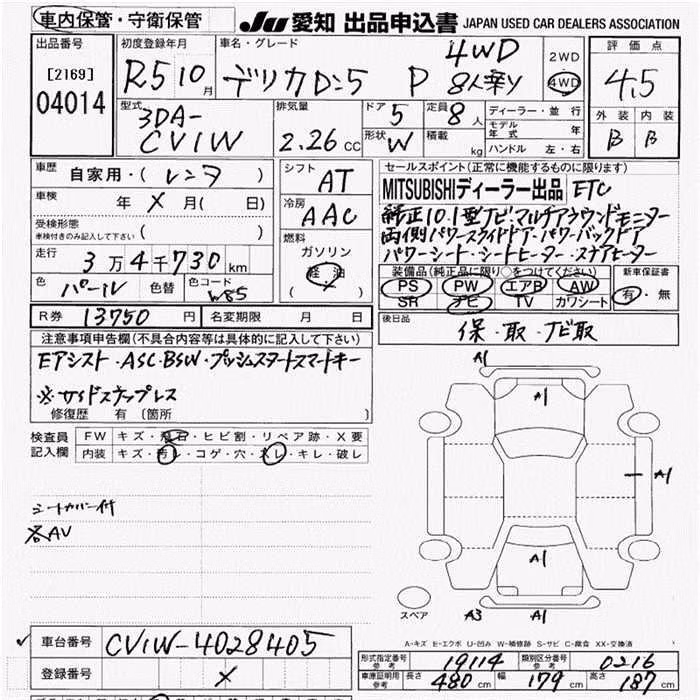 車内保管・守衛保管
JU 愛知 出品申込書 JAPAN USED CAR DEALERS ASSOCIATION
出品番号
[2169]
04014
初度登録年月
R5 10月
車名・グレード
デリカD:5 P 4WD 8人乗り
2WD
4WD
評価点
4.5
外装 内装
B B
型式
3DA-
CV1W
排気量
2.26 CC
ドア 5
形状 W
定員 8 人
積載 kg
ディーラー・並行
モデル年式 年
ハンドル 左・右
車歴 自家用・(レンタ)
車検 年 × 月( 日)
受検形態
車検付きのみ記入して下さい ( )
走行 3万4千730km
色 パール 色替 色コード W85
シフト
AT
冷房
AAC
燃料
ガソリン
軽油
( )
セールスポイント(正常に機能するものに限ります)
MITSUBISHIディーラー出品 ETC
純正10.1型ナビ・マルチアラウンドモニター
両側パワースライドドア・パワーバックドア
パワーシート・シートヒーター・ステアヒーター
装備品(純正品に限り○をつけてください)
PS PW エアB AW
SR ナビ TV カワシート
新車保証書
有・無
R券 13750 円 名変期限 月 日
後日品
保・取・ナビ取
注意事項申告欄(不具合内容等は具体的に記入して下さい)
Eアシスト・ASC・BSW・プッシュスタートスマートキー
※サイドステップレス
修復歴 有 〔箇所 〕
検査員記入欄
FW キズ・飛石・ヒビ割・リペア跡・X要
内装 キズ・汚レ・コゲ・穴・スレ・キレ・破レ
シートカバー付
各AV
A1
A1
A1
A1
スペア
A3 A1
A-キズ E-エクボ U-凹み W-補修跡 S-サビ C-腐食 XX-交換済
車台番号 CV1W-4028405
登録番号 ×
形式指定番号参考 19114 類別区分番号参考 0216
車庫証明用参考 長さ 480 cm 幅 179 cm 高さ 187 cm